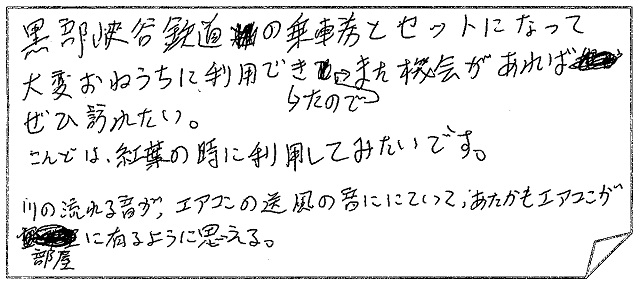 黒部峡谷鉄道の乗車券とセットになって
大変おねうちに利用できたので、また機会があれば
ぜひ訪れたい。
こんどは、紅葉の時に利用してみたいです。
川の流れる音が、エアコンの送風の音ににていて、あたかもエアコンが
部屋に有るように思える。